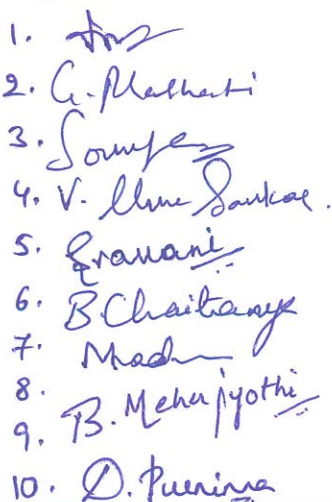 1.
2. G. Malhati
3. Soumya
4. V. Uma Sankar.
5. Sravani
6. B Chaitanya
7. Madhu
8.
9. B. Meher jyothi
10. D. Purnima